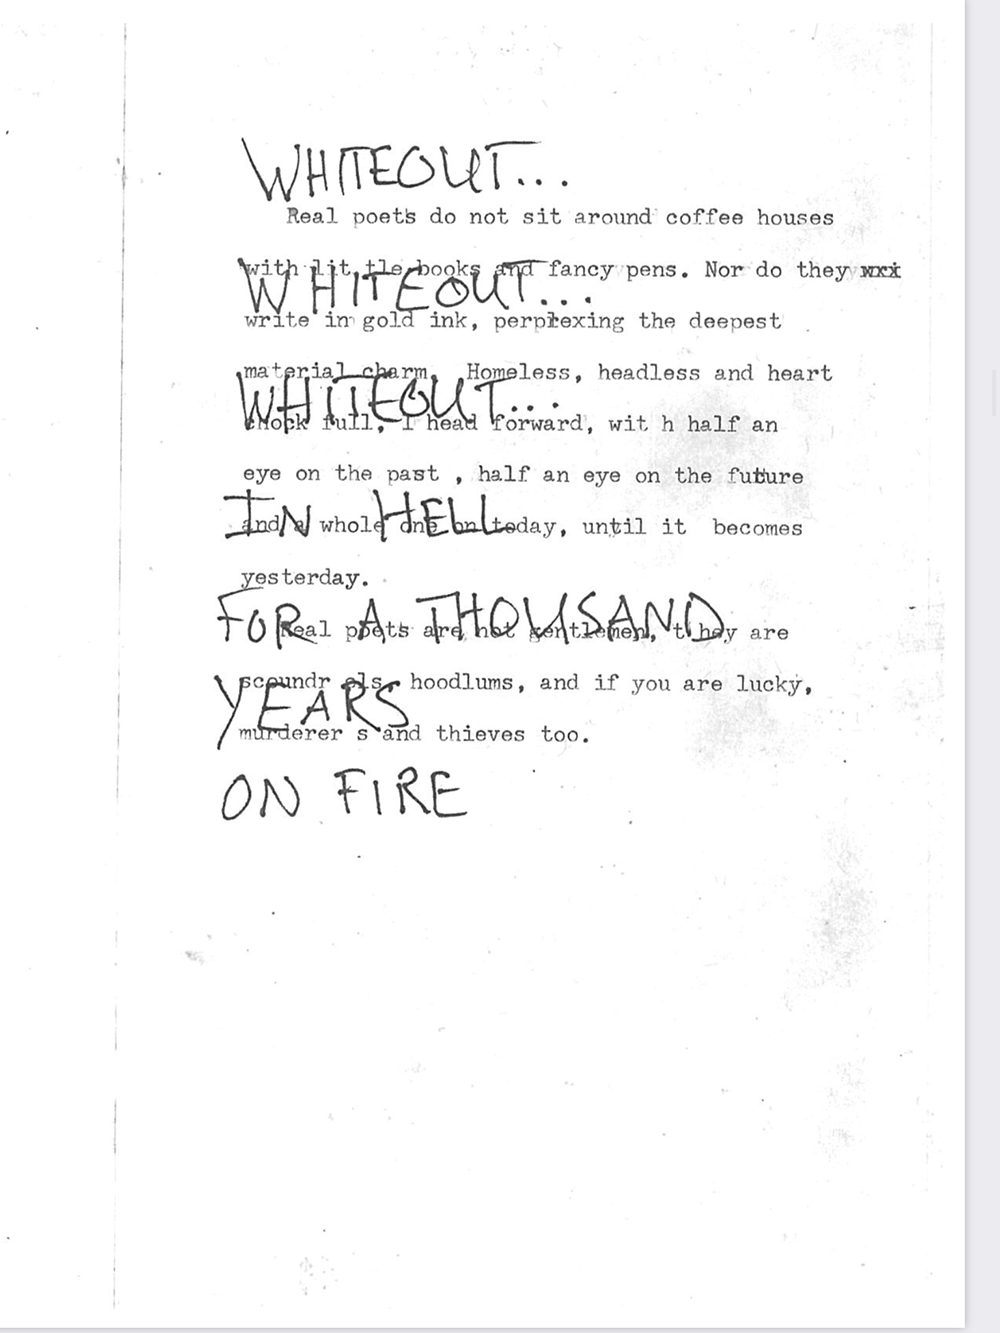 WHITEOUT...
Real poets do not sit around coffee houses
with lit tle books and fancy pens. Nor do they wxi
WHITEOUT...
write in gold ink, perplexing the deepest
material charm. Homeless, headless and heart
WHITEOUT...
chock full, I head forward, wit h half an
eye on the past , half an eye on the future
IN HELL
and a whole one on today, until it becomes
yesterday.
FOR A THOUSAND
Real poets are not gentlemen, t hey are
scoundr els, hoodlums, and if you are lucky,
YEARS
murderer s and thieves too.
ON FIRE